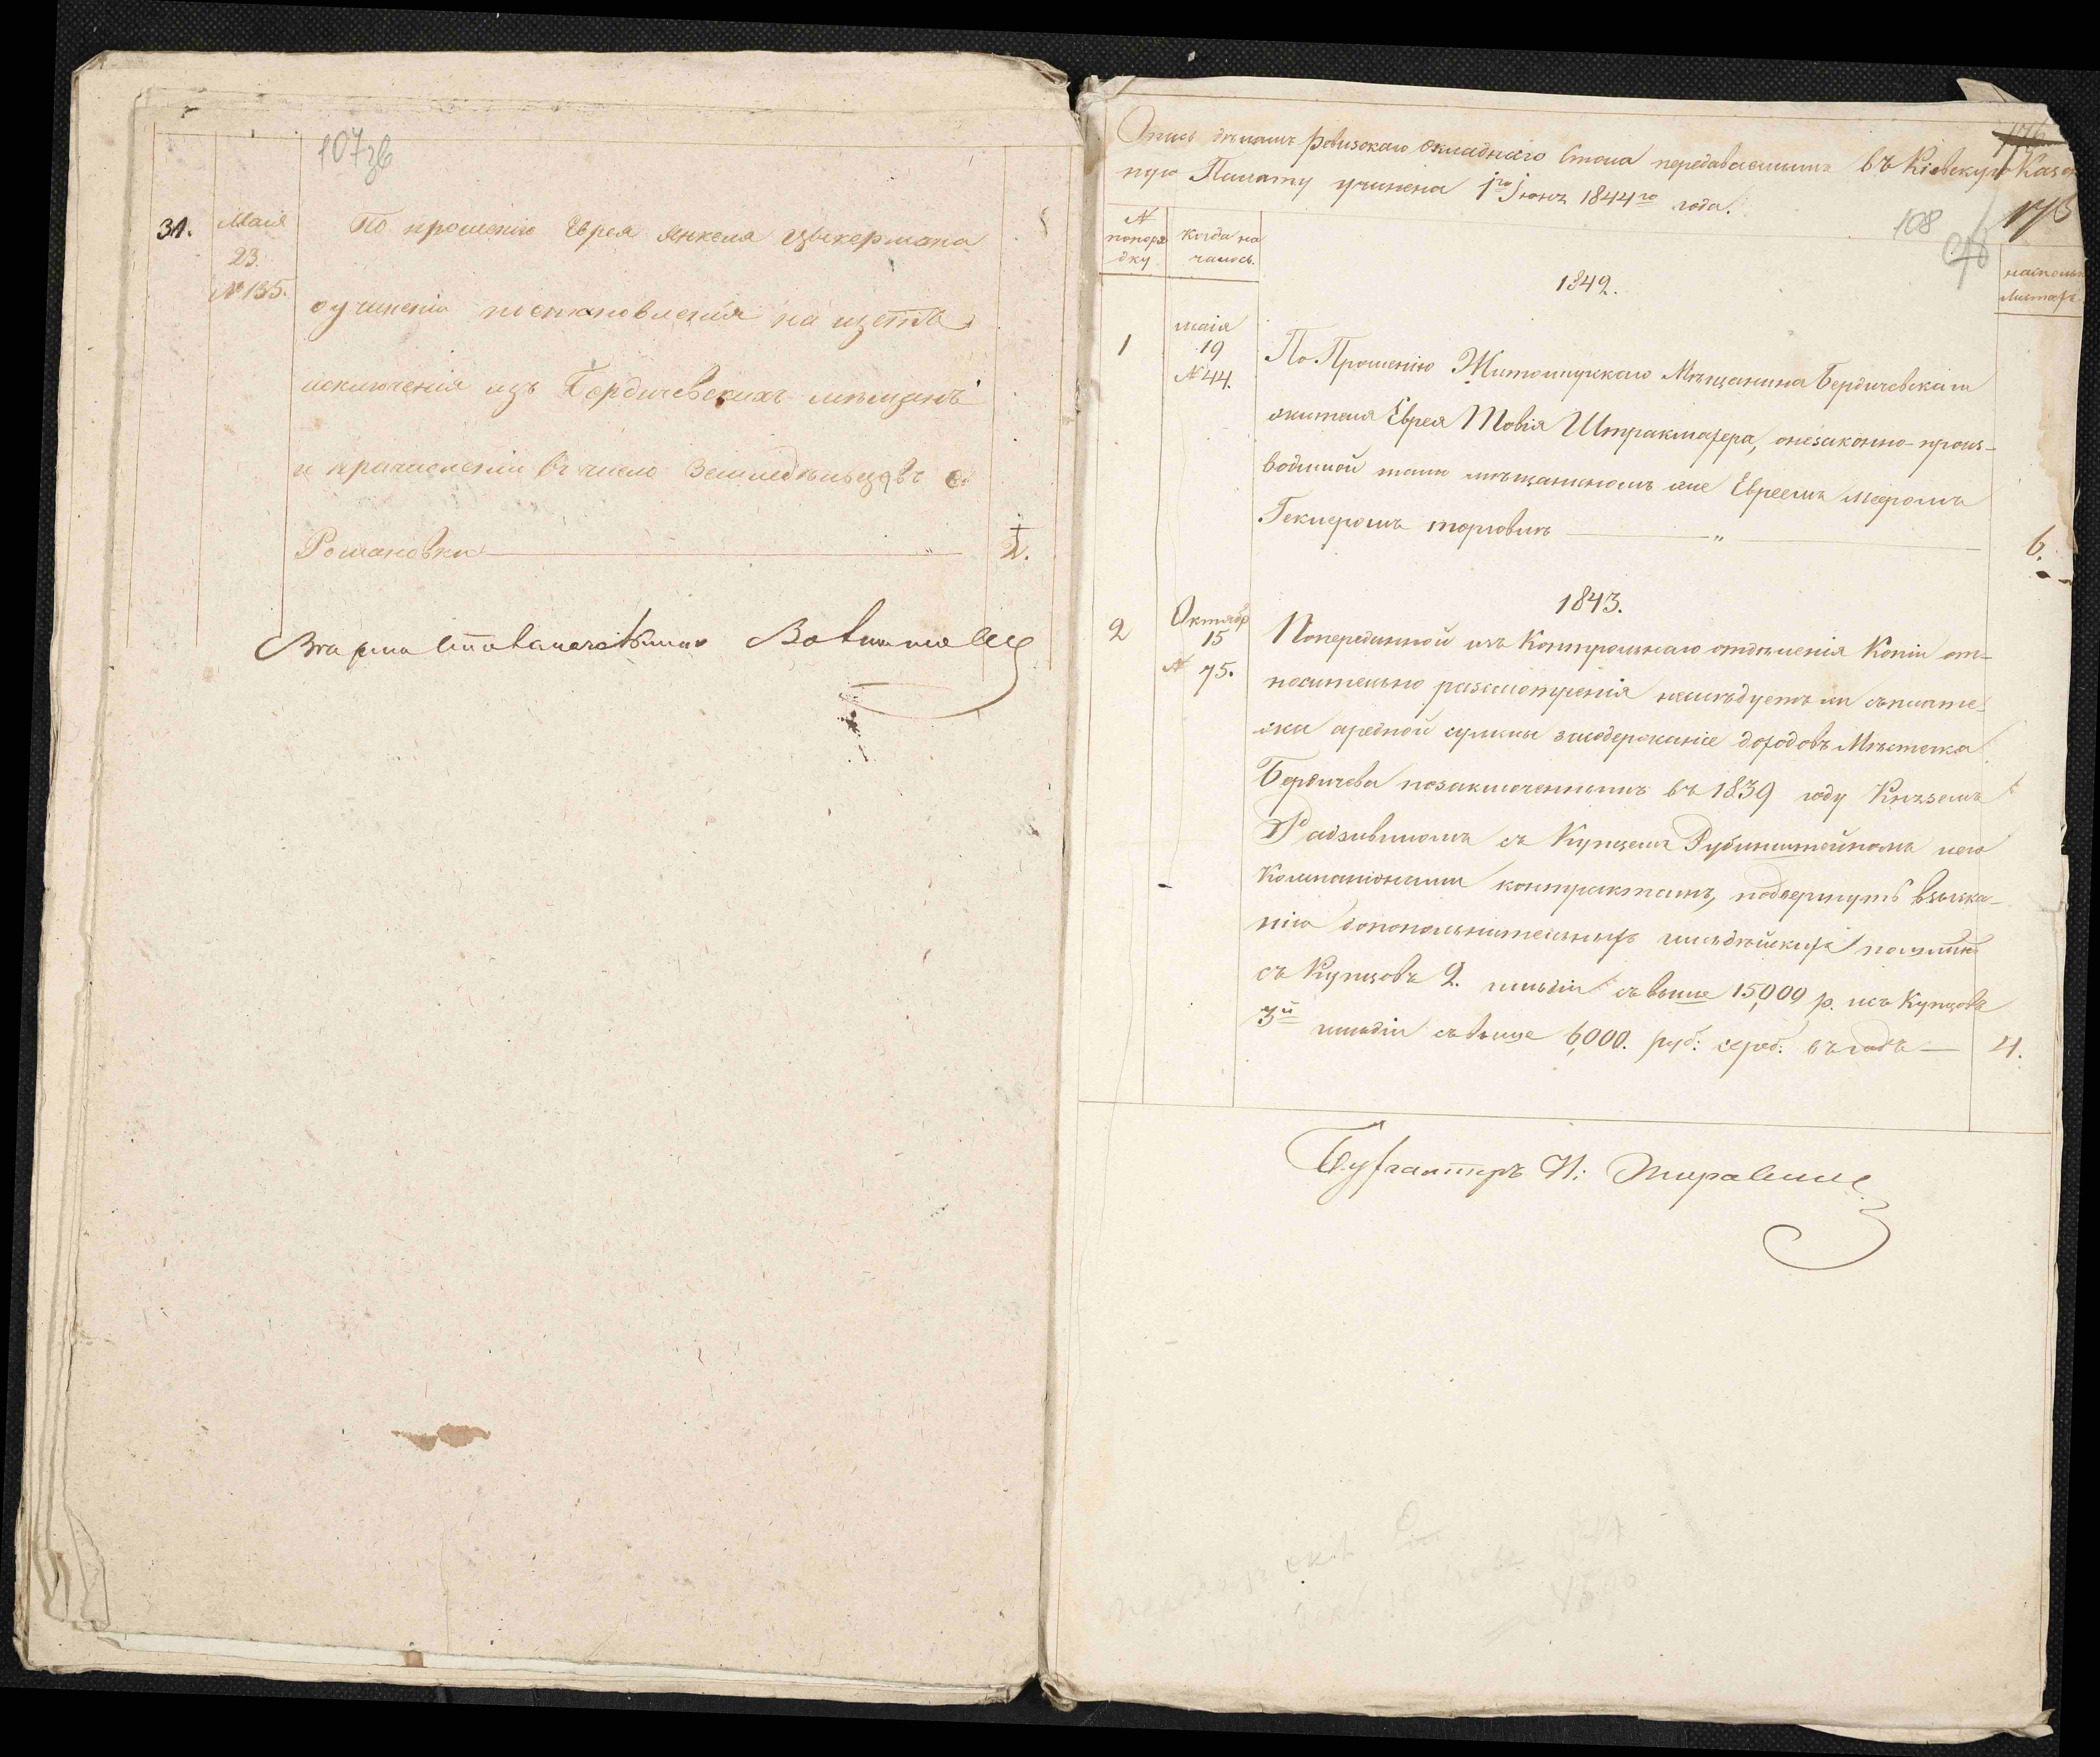 107зв
31.
Маія
23.
№ 135.
По прошенію Еврея Янкеля Цыкермана
о учиненіи постановленія на
исключенія изъ Бердичевскихъ мѣщанъ
и причисленіи въ число Земледѣльцовъ
Романовки — „ — 2.
Опись дѣламъ Ревизскаго Окладнаго Стола передаваемымъ въ Кіевскую Казен
ную Палату учинена 1го Іюня 1844го года.
108
175
№
попоря
дку
Когда на
чалось.
насколь
Листахъ
1842.
1
маія
19
№ 44.
По Прошенію Житомирскаго Мѣщанина Бердичевскаго
жителя Еврея Товія Штракмахера, онезаконно-произ-
водимой тамъ мѣщаниномъ Евреемъ Мееромъ
Геклеромъ торговлѣ — „ — 6.
1843.
2
Октябр
15
№ 75.
Попереданной изъ Контрольнаго отдѣленія Копіи от-
носительно разсмотрѣнія неслѣдуетъ ли съплате-
жа аредной суммы засодержаніе доходовъ Мѣстечка
Бердичева позаключеннымъ въ 1839 году Княземъ
Радзивиломъ съ Купцемъ Рубинштейномъ иего
Компаніонами контрактамъ, подвергнуть взыска-
нію дополнительныхъ гильдейскихъ пошлинъ
съ Купцовъ 2. гильдіи свыше 15,000 р. исъ Купцовъ
3й гильдіи свыше 6,000. руб: сереб: въ годъ — 4.
Бухгалтеръ И: